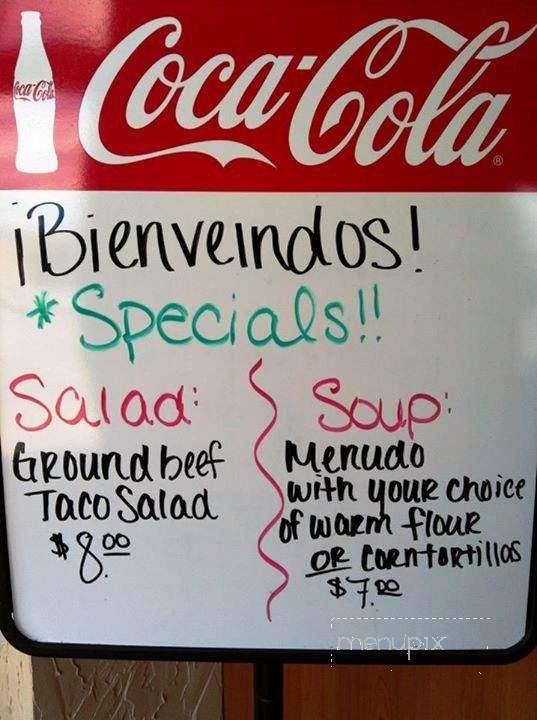 Coca-Cola
Coca-Cola®
¡Bienveindos!
*Specials!!
Salad:
Ground beef
Taco Salad
$8.00
Soup:
Menudo
with your choice
of warm flour
or corn tortillas
$7.00
menupix